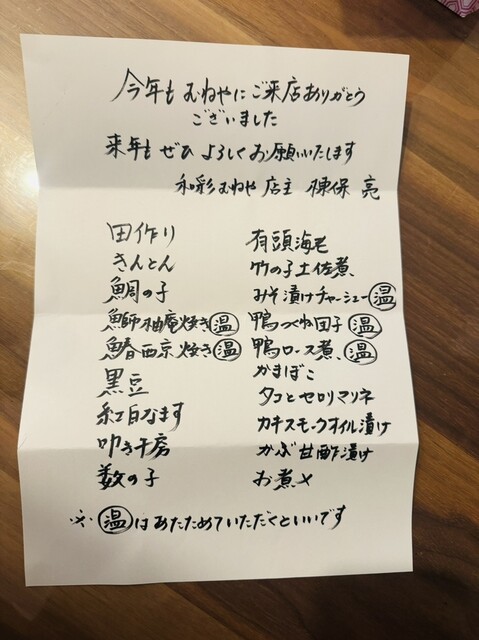 今年も むねやに ご来店ありがとう
ございました
来年も ぜひ よろしくお願いいたします
和彩むねや 店主 棟保 亮
田作り
きんとん
鯛の子
鰤柚庵焼き 温
鰆西京焼き 温
黒豆
紅白なます
叩き午房
数の子
有頭海老
竹の子土佐煮
みそ漬けチャーシュー 温
鴨つくね団子 温
鴨ロース煮 温
かまぼこ
タコとセロリマリネ
カキスモークオイル漬け
かぶ甘酢漬け
お煮〆
※ 温 はあたためていただくといいです